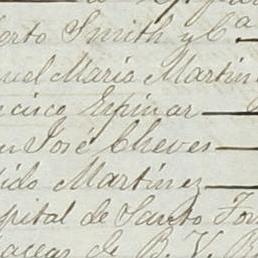 erto Smith y Ca
uel Maria Martin
cisco Espinar
n José Cheves
ido Martinez
spital de Santo Tom
aceas de B. V. B